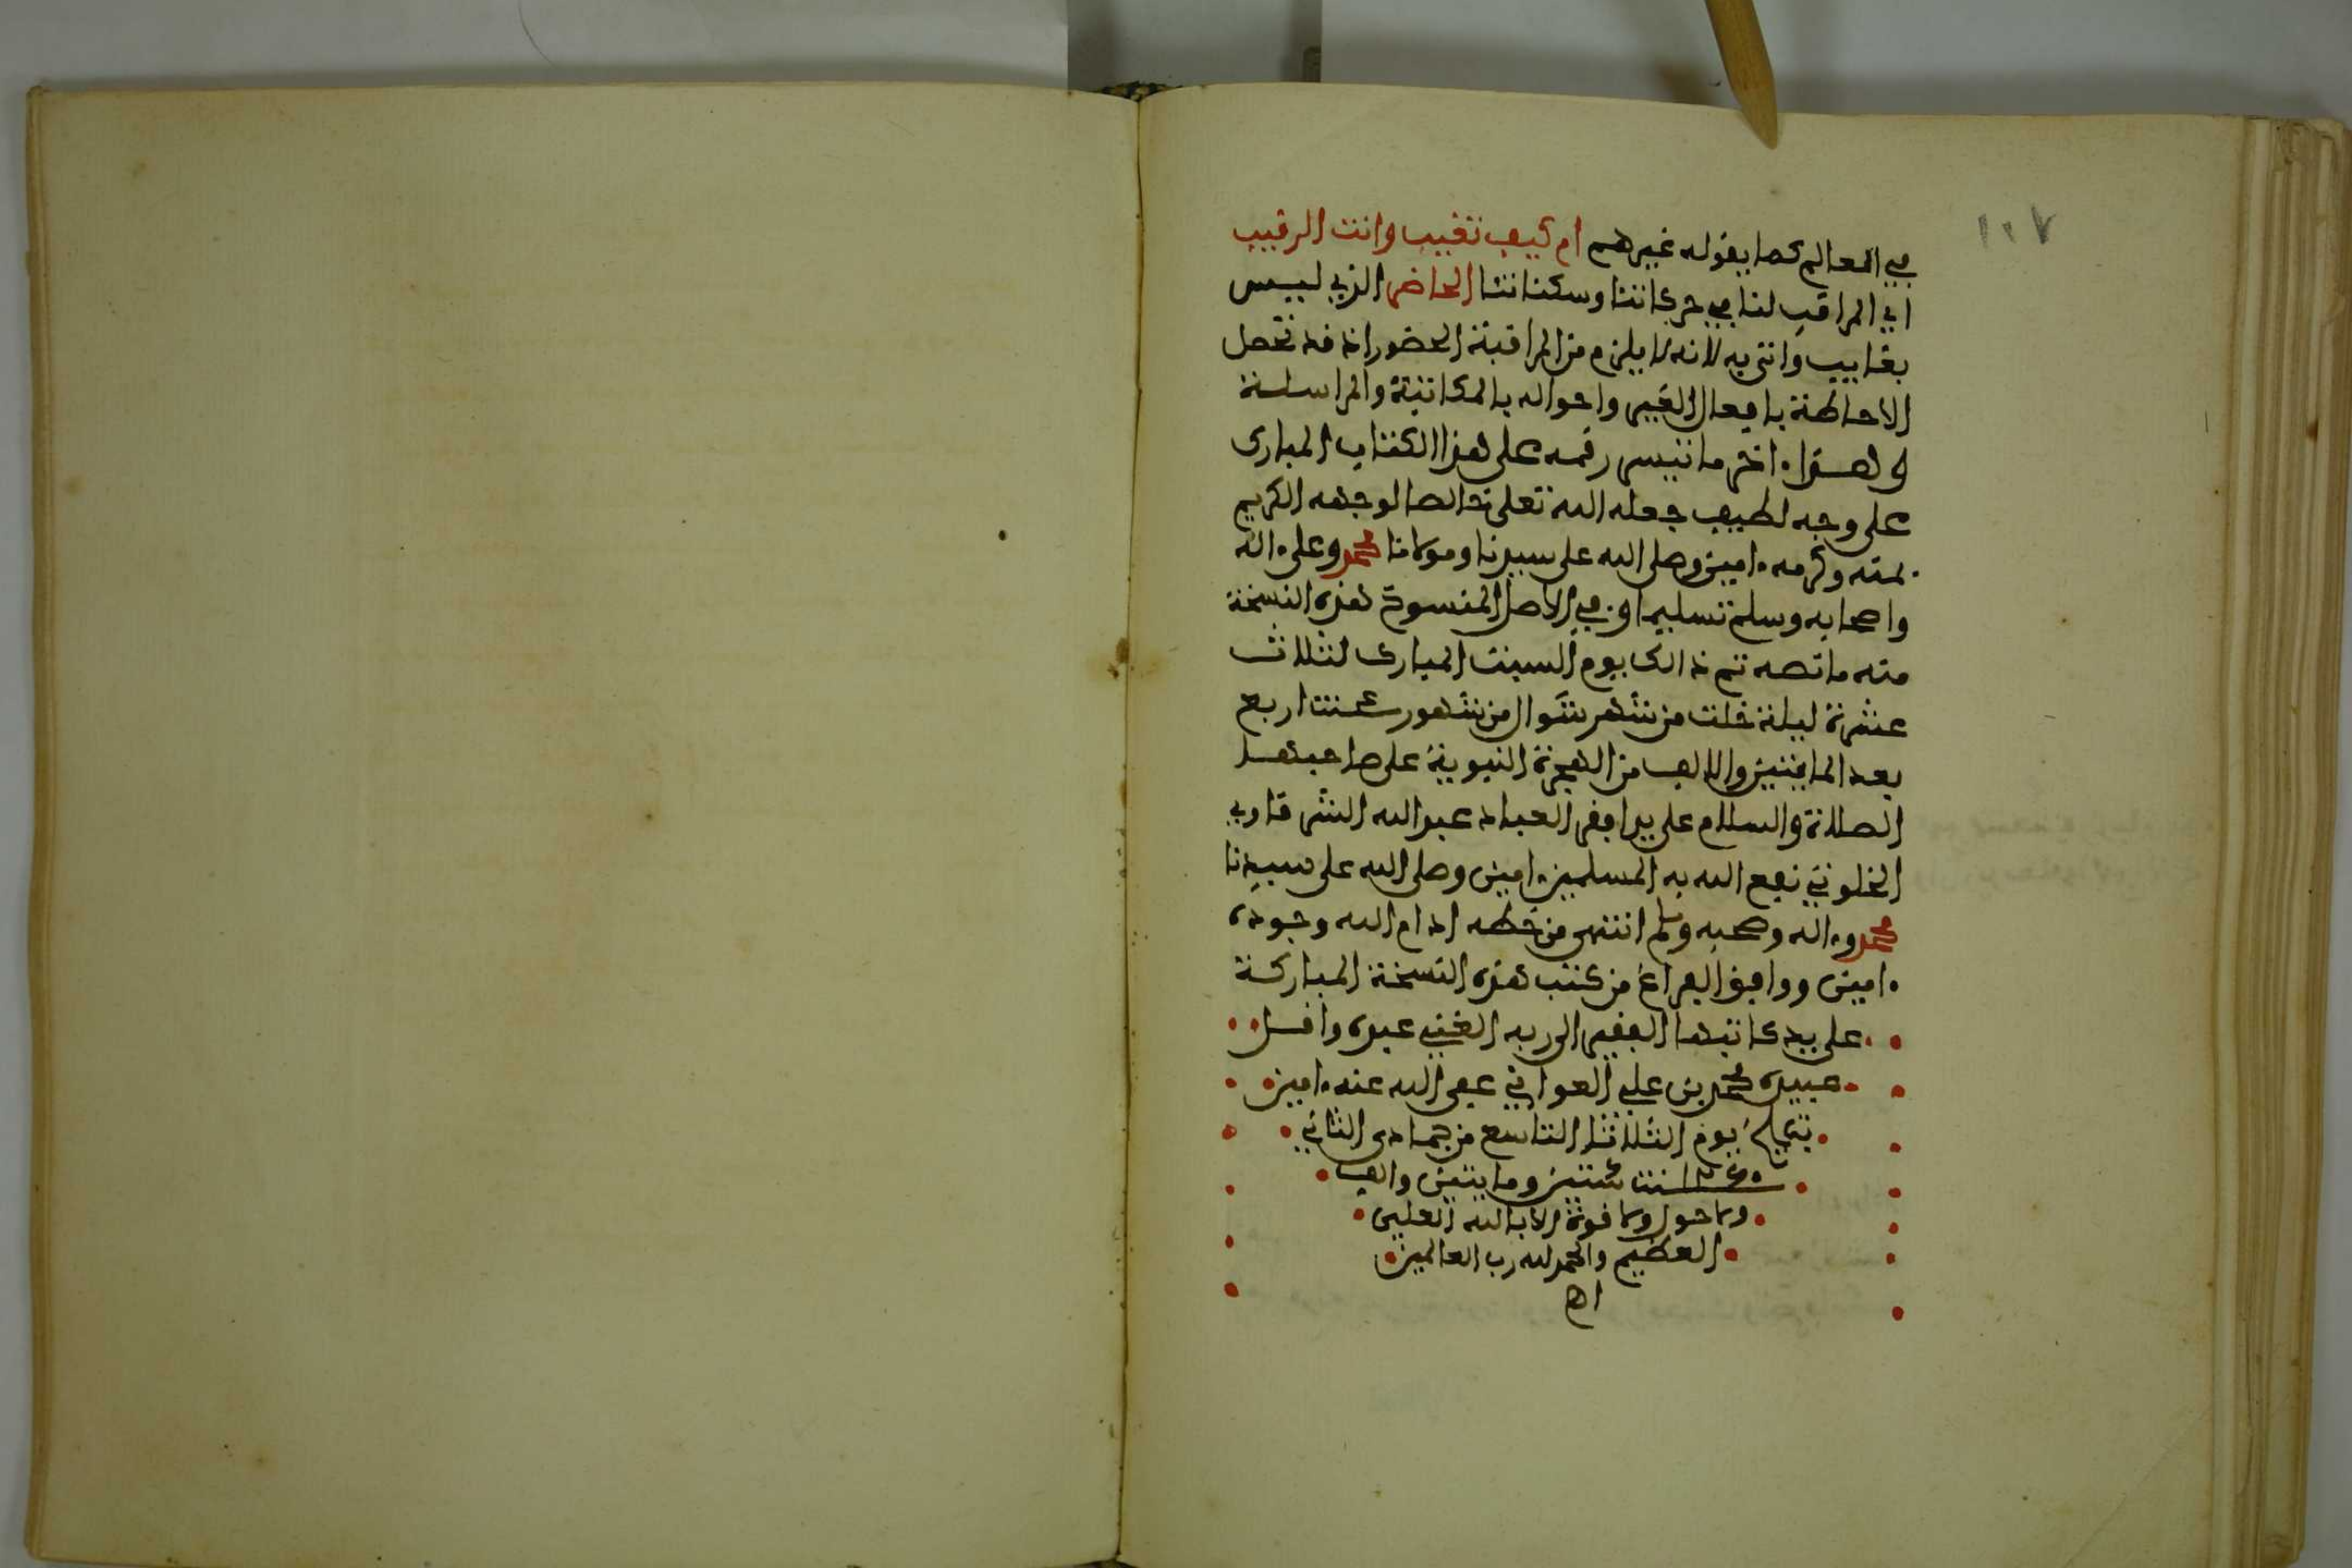 ١٠٧
في العالم كما يقوله غيرهم ام كيف تغيب وانت الرقيب
اي المراقب لنا في حركاتنا وسكناتنا الحاضر الذي ليس
بغايب واتى به لانه لا يلزم من المراقبة الحضور اذ قد تحصل
الاحاطة بافعال الغير واحواله بالمكاتبة والمراسلة
وهذا ءاخر ما تيسر رقمه على هذا الكتاب المبارك
على وجه لطيف جعله الله تعلى خالصا لوجهه الكريم
بمنه وكرمه ءامين وصلى الله على سيدنا ومولانا محمد وعلى ءاله
واصحابه وسلم تسليما وفي الاصل المنسوخ هذه النسخة
منه ما نصه تم ذالك يوم السبت المبارك لثلاث
عشرة ليلة خلت من شهر شوال من شهور سنت اربع
بعد المايتين والالف من الهجرة النبوية على صاحبها
الصلاة والسلام على يد افقر العباد عبد الله الشرقاوي
الخلوتي نفع الله به المسلمين ءامين وصلى الله على سيدنا
محمد وءاله وصحبه وسلم انتهى من خطه ادام الله وجوده
ءامين ووافق الفراغ من كتب هذه النسخة المباركة
على يد كاتبها الفقير الى ربه الغني عبده واقل
عبيده محمد بن علي العوافي عفى الله عنه ءامين
يوم الثلاثا التاسع من جمادى الثاني
سنت ستين ومايتين والف
ولا حول ولا قوة الا بالله العلي
العظيم والحمد لله رب العالمين
اه